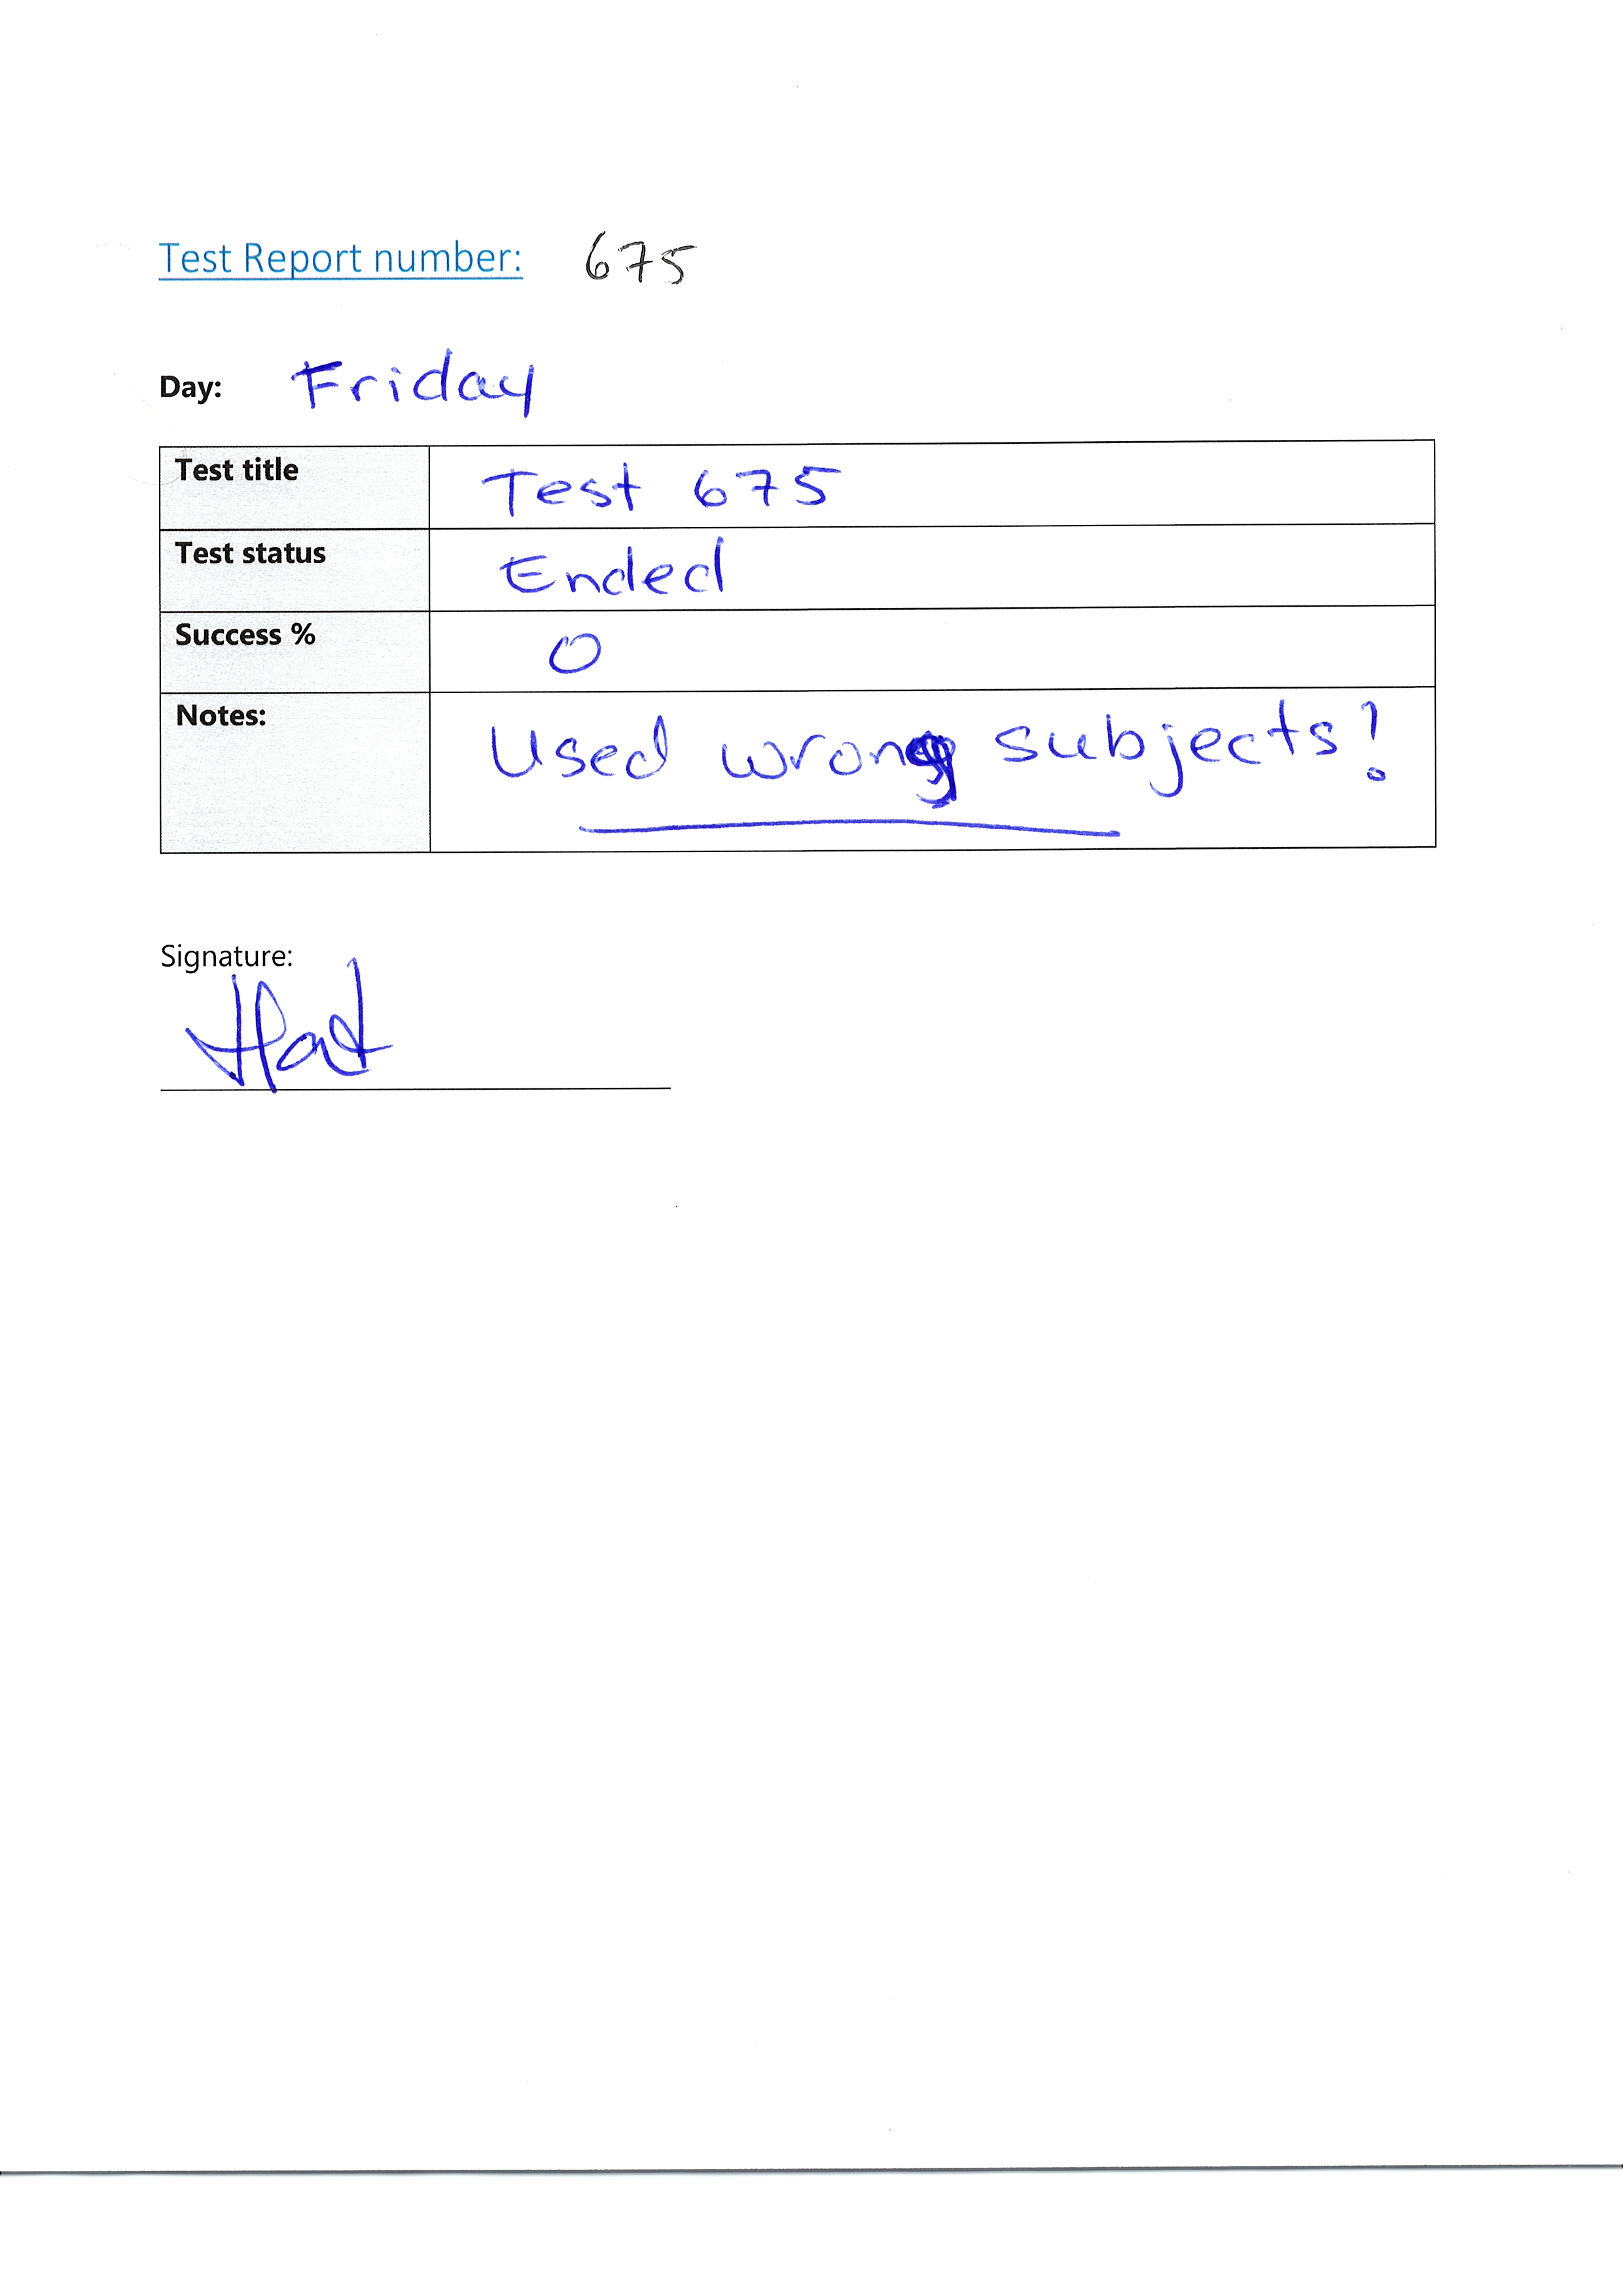 Test Report number: 675
Day: Friday
Test title Test 675
Test status Ended
Success % 0
Notes: Used wrong subjects!
Signature: